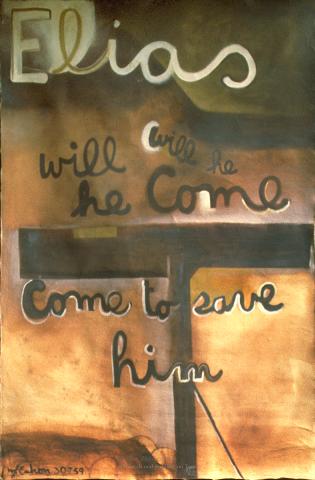 Elias
will he
will
he Come
Come to save
him
McCahon 30.7.59